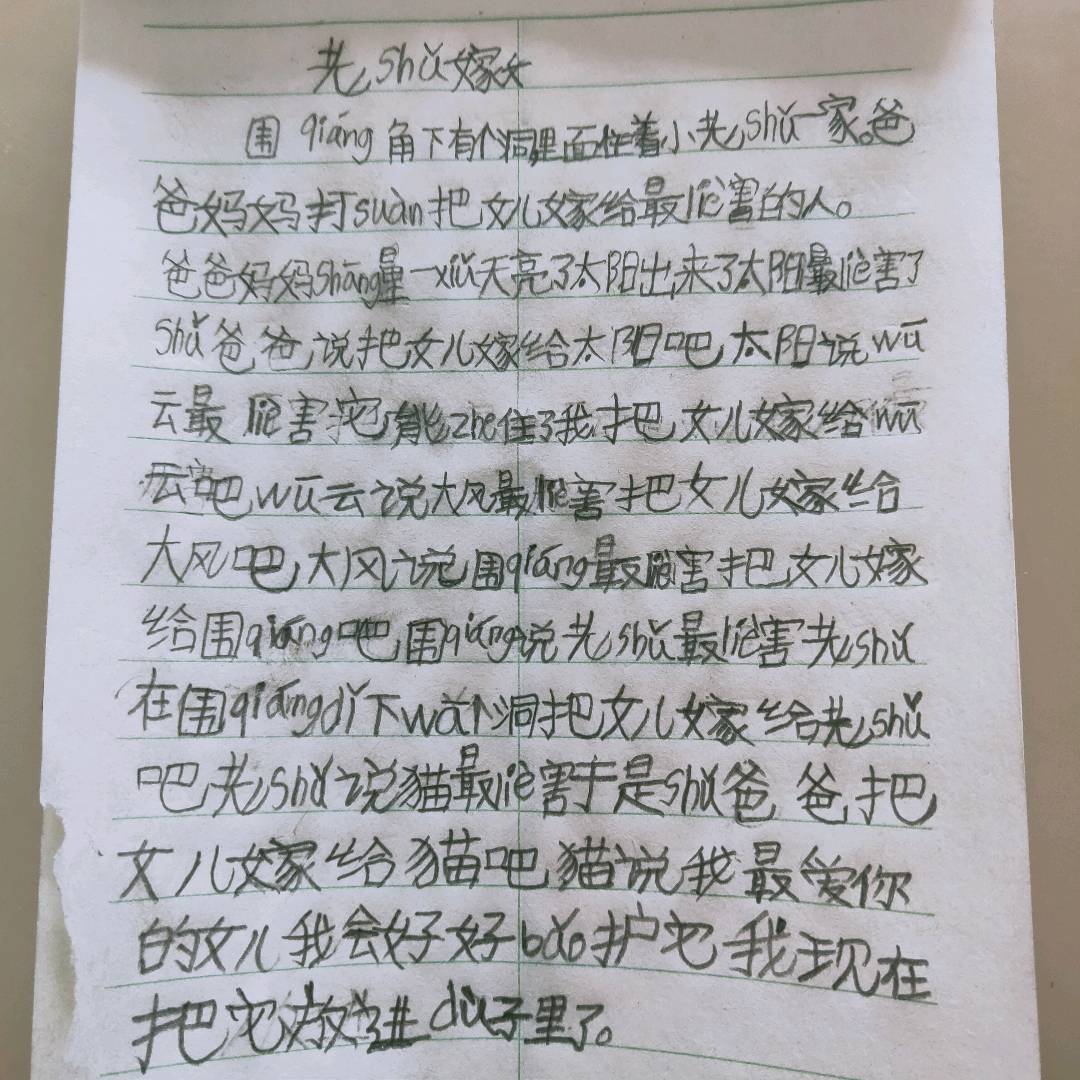 老shǔ嫁女
围qiáng角下有个洞里面住着小老shǔ一家。爸
爸妈妈打suàn把女儿嫁给最lìe害的人。
爸爸妈妈shāng量一xiǔ天亮了太阳出来了太阳最lìe害了
shǔ爸爸说把女儿嫁给太阳吧太阳说wū
云最lìe害它能zhe住了我把女儿嫁给wū
云吧wū云说大风最lìe害把女儿嫁给
大风吧大风说围qiáng最lìe害把女儿嫁
给围qiáng吧围qiáng说老shǔ最lìe害老shǔ
在围qiángdǐ下wā个洞把女儿嫁给老shǔ
吧老shǔ说猫最lìe害于是shǔ爸爸把
女儿嫁给猫吧猫说我最爱你
的女儿我会好好bǎo护它我现在
把它放进dù子里了。